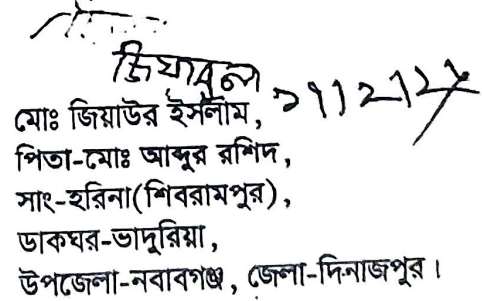 জিয়াবুল
মোঃ জিয়াউর ইসলাম,
পিতা-মোঃ আব্দুর রশিদ,
সাং-হরিনা(শিবরামপুর),
ডাকঘর-ভাদুরিয়া,
উপজেলা-নবাবগঞ্জ, জেলা-দিনাজপুর।